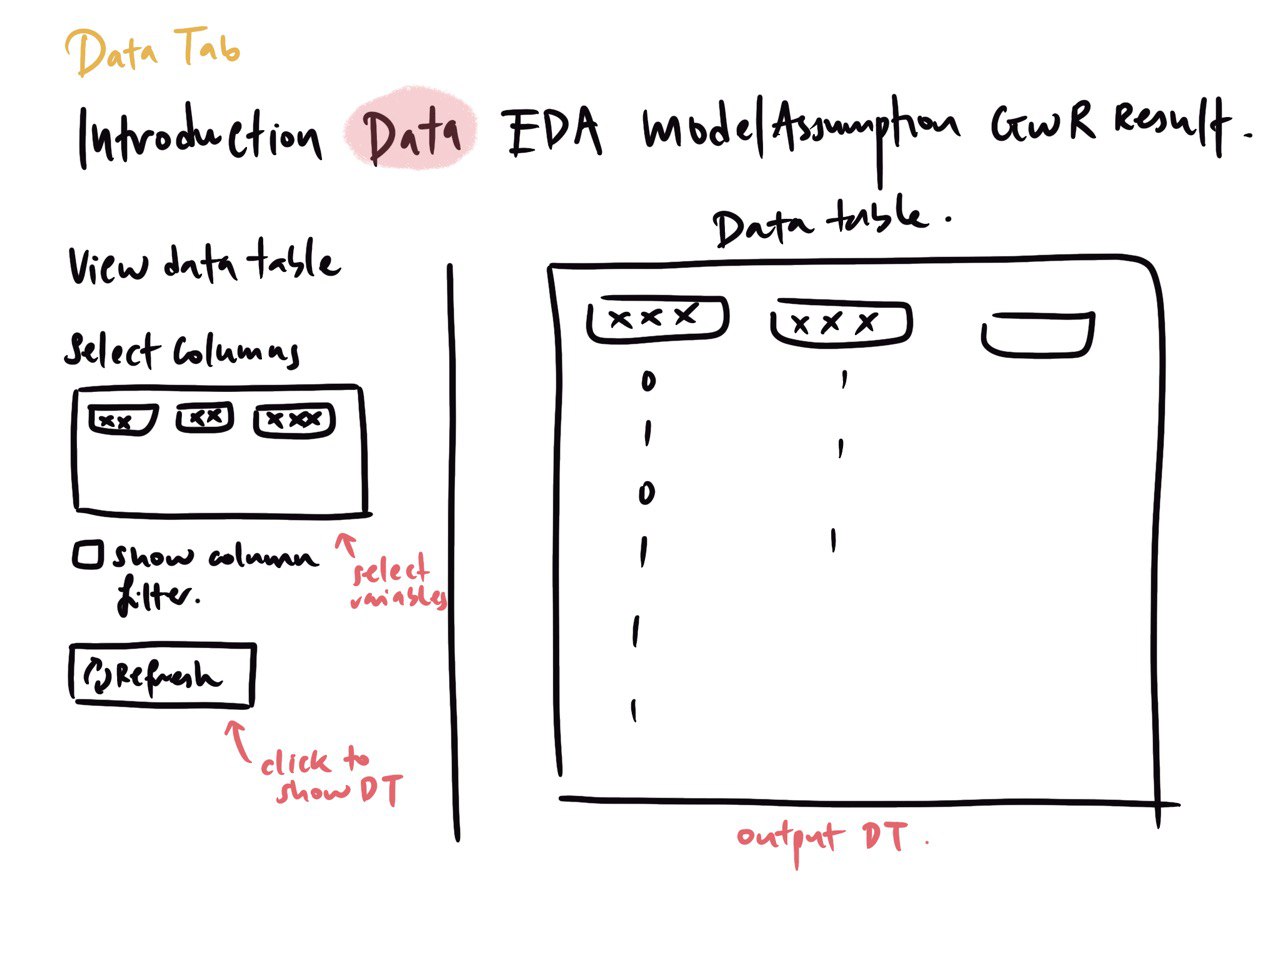 Data Tab
Introduction Data EDA Model Assumption GWR Result.
View data table
Select Columns
xx xx xxx
show column
filter.
Refresh
select
variables
click to
show DT
Data table.
xxx xxx
0 1
1 1
0
1 1
1
1
output DT.